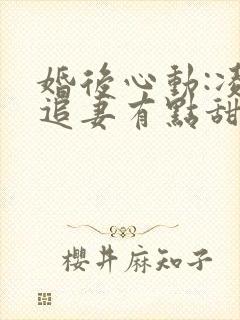 婚後心動:凌
追妻有點甜
櫻井麻知子